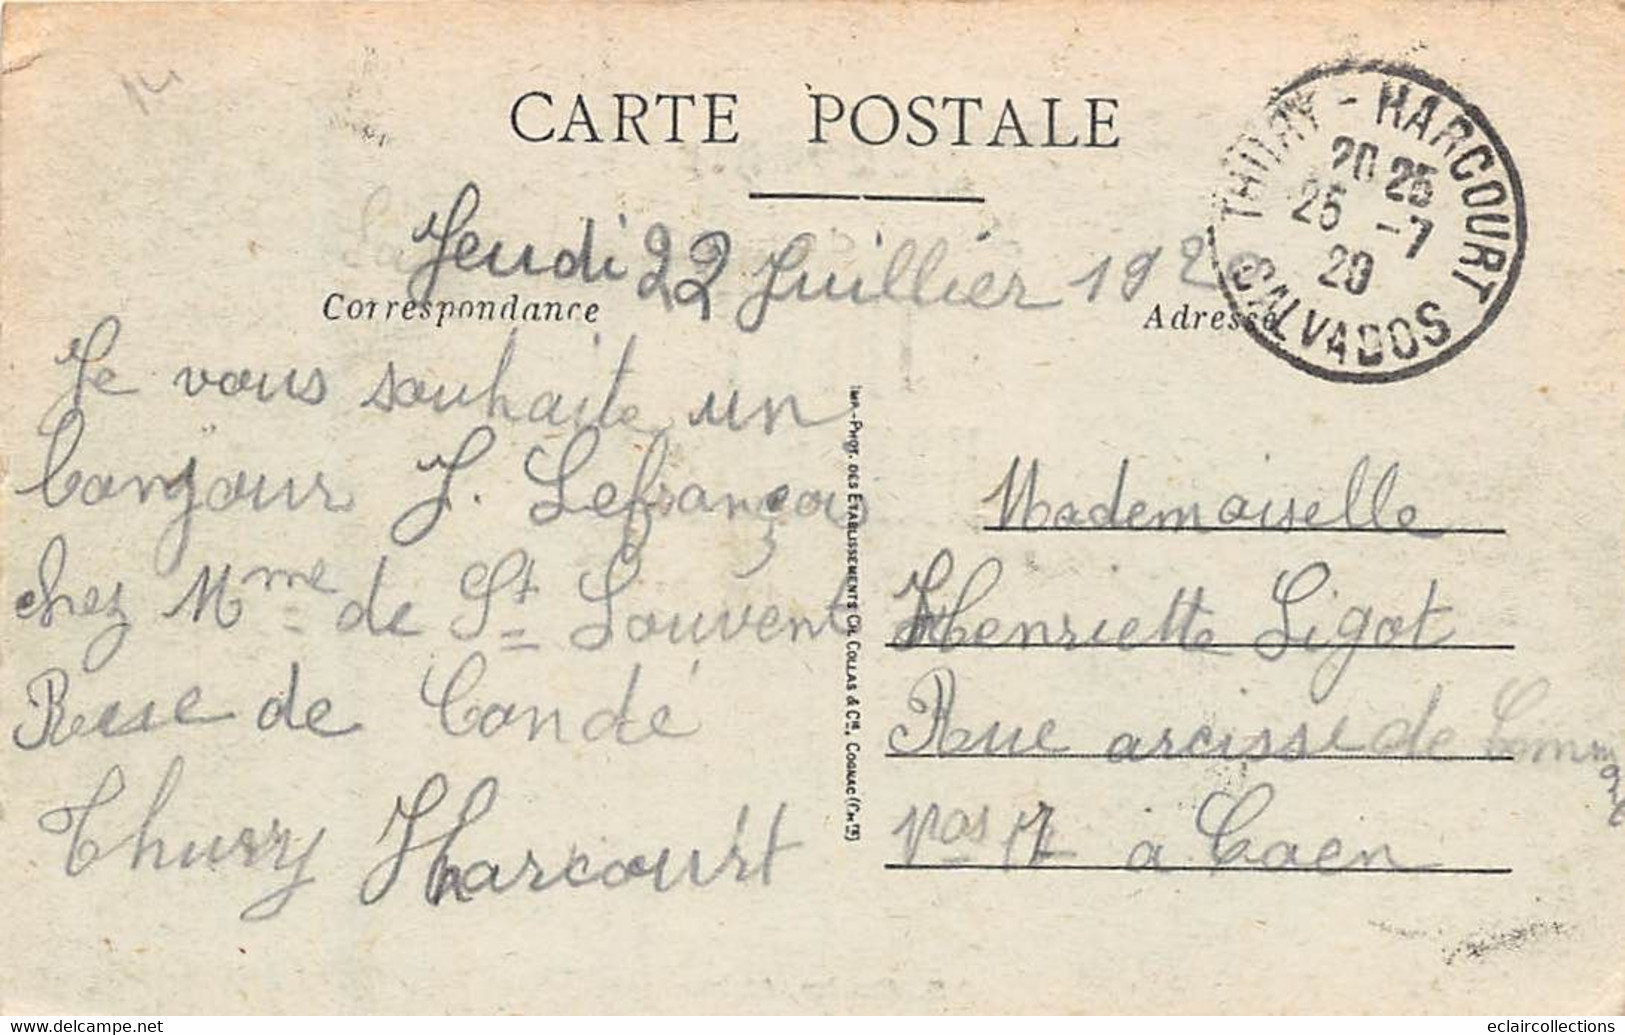 CARTE POSTALE
THURY-HARCOURT
20 25
25 -7
20
CALVADOS
Jeudi 22 Juillier 192
Correspondance
Adresse
Je vous souhaite un
bonjour J. Lefrançois
chez Mme de St Louvent
Ruse de Condé
Thury Harcourt
IMP.-PHOT. DES ETABLISSEMENTS CH. COLLAS & Cie, COGNAC (Chte)
Mademoiselle
Henriette Ligot
Rue arcisse de
17 à Caen
delcampe.net
eclaircollections